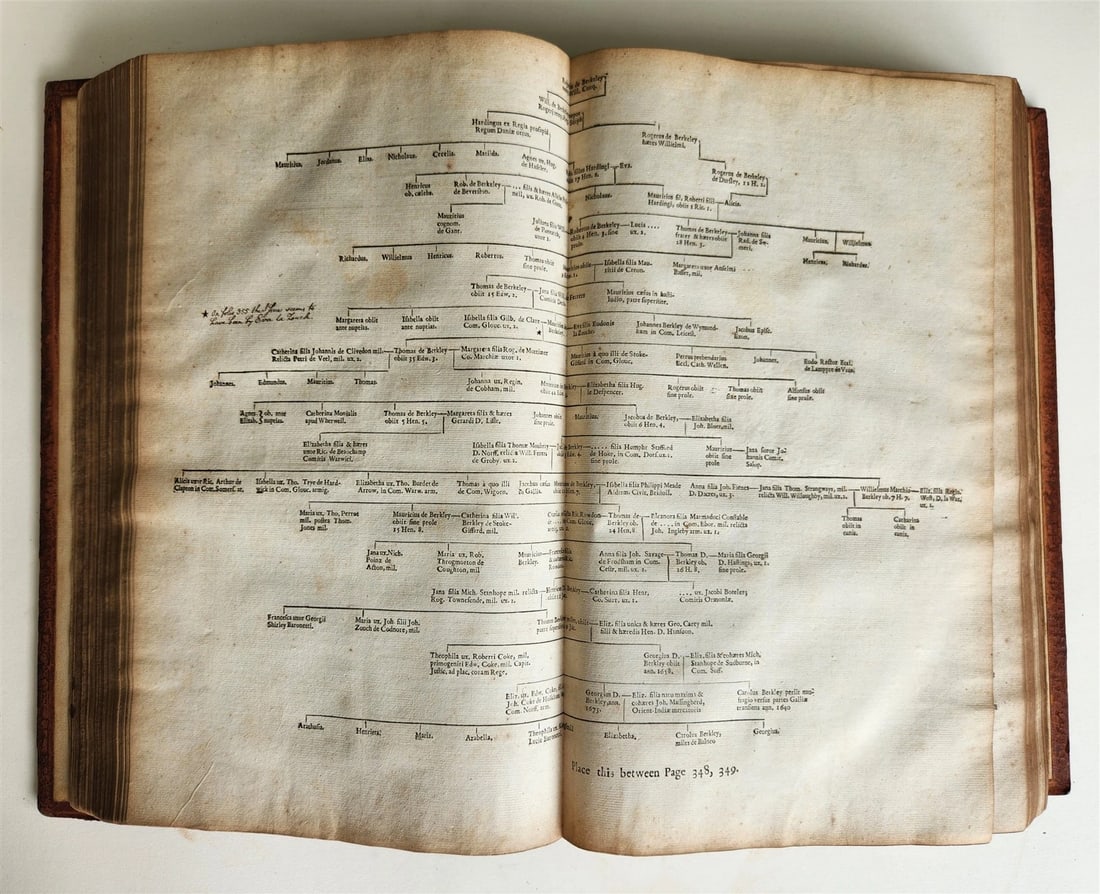 de Berkeley
Will. Conq.
Will. de
Hardingus ex Regia prosapia
Regum Daniæ ortus.
Rogerus de Berkeley
hæres Willielmi.
Mauritius. Jordanus. Elias. Nicholaus. Cecelia. Matilda. Agnes ux. Hug.
de Hasele.
filius Hardingi — Eva.
Hen. 2.
Rogerus de Berkeley
de Dursley, 12 H. 2.
Henricus
ob. cælebs.
Rob. de Berkeley
de Beverston.
filia & hæres
nell, ux. Rob. de
Nicholaus.
Mauritius fil. Roberti filii — Alicia.
Hardingi, obiit 1 Ric. 1.
Mauritius
cognom.
de Gant.
Juliana filia
ux. 1.
de Berkeley — Lucia ....
Hen. 3. sine ux. 2.
prole.
Thomas de Berkeley — Johanna filia
frater & hæres obiit Rad. de So-
28 Hen. 3. meri.
Mauritius. Willielmus.
Henricus. Richardus.
Richardus. Willielmus Henricus Robertus Thomas obiit
sine prole.
Isabella filia Mau-
ritii de Creun.
Margareta uxor Anselmi
Basset, mil.
Thomas de Berkeley
obiit 15 Edw. 2.
Jana filia
Comitis
Ferrers
Mauritius cæsus in hasti-
ludio, patre superstite.
★ In folio 355 the Issue seems to
have been by Eva la Zouch.
Margareta obiit
ante nuptias.
Isabella obiit
ante nuptias.
Isabella filia Gilb. de Clare
Com. Glouc. ux. 2.
★
Eva filia Eudonis
la Zouche.
Johannes Berkeley de Wymond-
ham in Com. Leicest.
Jacobus Episc.
Exon.
Catherina filia Johannis de Clivedon mil. — Thomas de Berkeley — Margareta filia Rog. de Mortimer
Relicta Petri de Veel, mil. ux. 2. obiit 35 Edw. 3. Co. Marchiæ uxor 1.
Mauritius à quo illi de Stoke-
Gifford in Com. Glouc.
Petrus prebendarius
Eccl. Cath. Wellen.
Johannes.
Eudo Rector Eccl.
de Lampyre de Vaur.
Johannes. Edmundus. Mauritius. Thomas.
Johanna ux. Regin.
de Cobham, mil.
Elizabetha filia Hug.
le Despencer.
Rogerus obiit
sine prole.
Thomas obiit
sine prole.
Alfonsus obiit
sine prole.
Agnes ob. ante
Elizab. nuptias.
Catherina Monialis
apud Wherwell.
Thomas de Berkley — Margareta filia & hæres
obiit 5 Hen. 5. Gerardi D. Lisle.
Johannes obiit
sine prole.
Mauritius.
Jacobus de Berkley — Elizabetha filia
obiit 6 Hen. 4. Joh. Bluet, mil.
Elizabetha filia & hæres
uxor Ric. de Beauchamp
Comitis Warwici.
Isabella filia Thomæ Moubray
D. Norff. relicta Will. Ferrers
de Groby ux. 2.
..... filia Humphr. Stafford
de Hoke, in Com. Dors. ux. 1.
sine prole.
Mauritius — Jana soror Jo-
obiit sine hannis Comit.
prole Salop.
Alicia uxor Ric. Arthur de
Clapton in Com. Somerset. ar.
Isabella ux. Tho. Trye de Hard-
wick in Com. Glouc. armig.
Elizabetha ux. Tho. Burdet de
Arrow, in Com. Warw. arm.
Thomas à quo illi
de Com. Wigorn.
Jacobus cæsus
in Galliis.
Isabella filia Philippi Meade
Alderm. Civit. Bristoll.
Anna filia Joh. Fienes
D. Dacres, ux. 3.
Jana filia Thom. Strangways, mil.
relicta Will. Willoughby, mil. ux. 2.
Willielmus Marchio
Berkeley ob. 7 H. 7.
Eliz. filia Regin.
West, D. la War,
ux. 1.
Maria ux. Tho. Perrot
mil. postea Thom.
Jones mil.
Mauricius de Berkley
obiit sine prole
15 Hen. 8.
Catherina filia Wil.
Berkley de Stoke-
Gifford, mil.
Thomas de
Berkeley ob.
24 Hen. 8.
Eleanora filia Marmaduci Constable
de .... in Com. Ebor. mil. relicta
Joh. Ingleby arm. ux. 1.
Thomas
obiit in
cunis.
Catharina
obiit in
cunis.
Jana ux. Nich.
Poinz de
Acton, mil
Maria ux. Rob.
Throgmorton de
Coughton, mil
Mauritius
Berkeley.
Anna filia Joh. Savage
de Frodsham in Com.
Cestr. mil. ux. 2.
Thomas D.
Berkeley ob.
26 H. 8.
Maria filia Georgii
D. Hastings, ux. 1.
sine prole.
Jana filia Mich. Stanhope mil. relicta
Rog. Townesende, mil. ux. 2.
Catherina filia Henr.
Co. Surr. ux. 1.
.... ux. Jacobi Boteler;
Comitis Ormoniæ.
Francesca uxor Georgii
Shirley Baronetti.
Maria ux. Joh. filii Joh.
Zouch de Codnore, mil.
Thomas
Eliz. filia unica & hæres Geo. Carey mil.
filii & hæredis Hen. D. Hunsdon.
Theophila ux. Roberti Coke, mil.
primogeniti Edw. Coke, mil. Capit.
Justic. ad plac. coram Rege.
Georgius D.
Berkley obiit
ann. 1658.
Eliz. filia & cohæres Mich.
Stanhope de Sudburne, in
Com. Suff.
Eliz. ux. Edw. Coke,
Joh. Coke de
Com. Norff. arm.
Georgius D.
Berkley, ann.
1675.
Eliz. filia natu maxima &
cohæres Joh. Massingberd,
Orient-Indiæ mercatoris
Carolus Berkley periit nau-
fragio versus partes Galliæ
transiens apn. 1640
Arathusa. Henrietta. Maria. Arabella, Theophila ux.
Elizabetha, Carolus Berkley,
miles de Balneo
Georgius.
Place this between Page 348, 349.